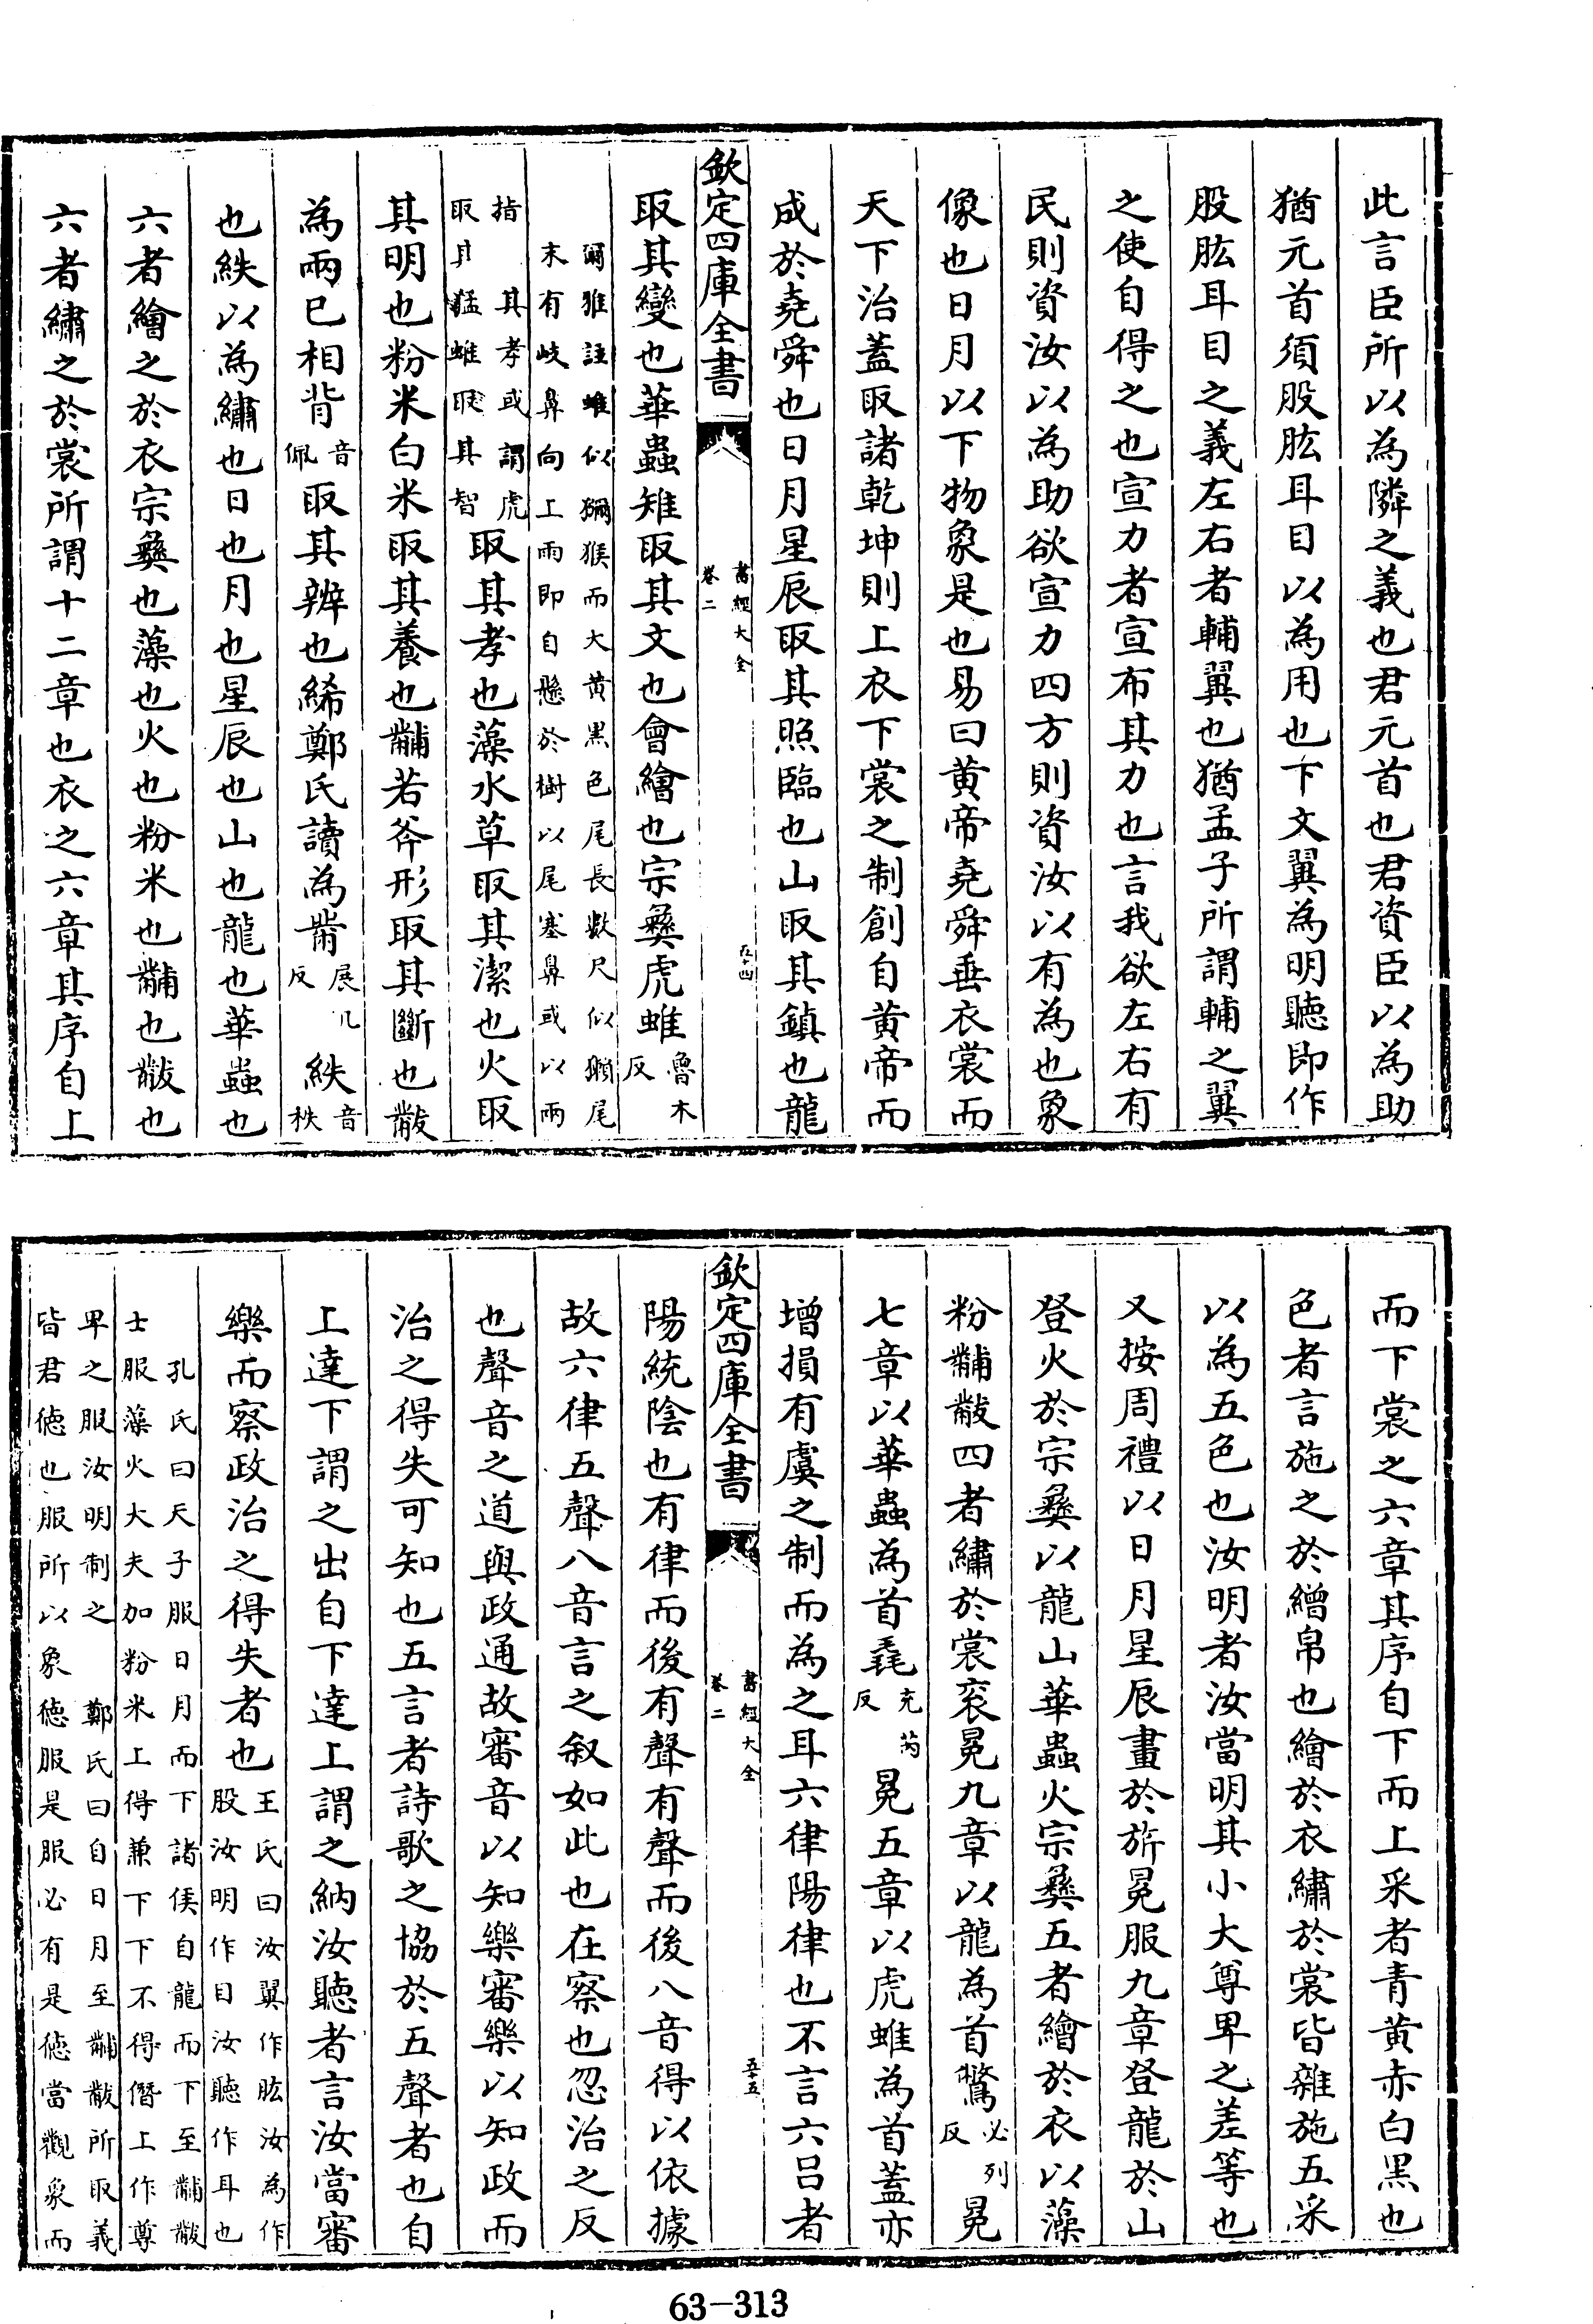 此言臣所以為隣之義也君元首也君資臣以為助
猶元首須股肱耳目以為用也下文翼為明聽即作
股肱耳目之義左右者輔翼也猶孟子所謂輔之翼
之使自得之也宣力者宣布其力也言我欲左右有
民則資汝以為助欲宣力四方則資汝以有為也象
像也日月以下物象是也易曰黄帝堯舜垂衣裳而
天下治蓋取諸乾坤則上衣下裳之制創自黄帝而
成於堯舜也日月星辰取其照臨也山取其鎮也龍
欽定四庫全書
書經大全
卷二
五十四
取其變也華蟲雉取其文也會繪也宗彝虎蜼魯木反
爾雅註蜼似獼猴而大黄黑色尾長數尺似獺尾
末有岐鼻向上雨即自懸於樹以尾塞鼻或以兩
指
其孝或謂虎
取其猛蜼取其智取其孝也藻水草取其潔也火取
其明也粉米白米取其養也黼若斧形取其斷也黻
為兩已相背音佩取其辨也絺鄭氏讀為黹展几反紩音秩
也紩以為繡也日也月也星辰也山也龍也華蟲也
六者繪之於衣宗彝也藻也火也粉米也黼也黻也
六者繡之於裳所謂十二章也衣之六章其序自上
而下裳之六章其序自下而上采者青黄赤白黑也
色者言施之於繒帛也繪於衣繡於裳皆雜施五采
以為五色也汝明者汝當明其小大尊卑之差等也
又按周禮以日月星辰畫於旂冕服九章登龍於山
登火於宗彝以龍山華蟲火宗彝五者繪於衣以藻
粉黼黻四者繡於裳衮冕九章以龍為首鷩必列反冕
七章以華蟲為首毳充芮反冕五章以虎蜼為首蓋亦
增損有虞之制而為之耳六律陽律也不言六吕者
欽定四庫全書
書經大全
卷二
五十五
陽統陰也有律而後有聲有聲而後八音得以依據
故六律五聲八音言之叙如此也在察也忽治之反
也聲音之道與政通故審音以知樂審樂以知政而
治之得失可知也五言者詩歌之協於五聲者也自
上達下謂之出自下達上謂之納汝聽者言汝當審
樂而察政治之得失者也王氏曰汝翼作肱汝為作
股汝明作目汝聽作耳也
孔氏曰天子服日月而下諸侯自龍而下至黼黻
士服藻火大夫加粉米上得兼下下不得僭上作尊
卑之服汝明制之 鄭氏曰自日月至黼黻所取義
皆君徳也服所以象徳服是服必有是徳當觀象而
63-313